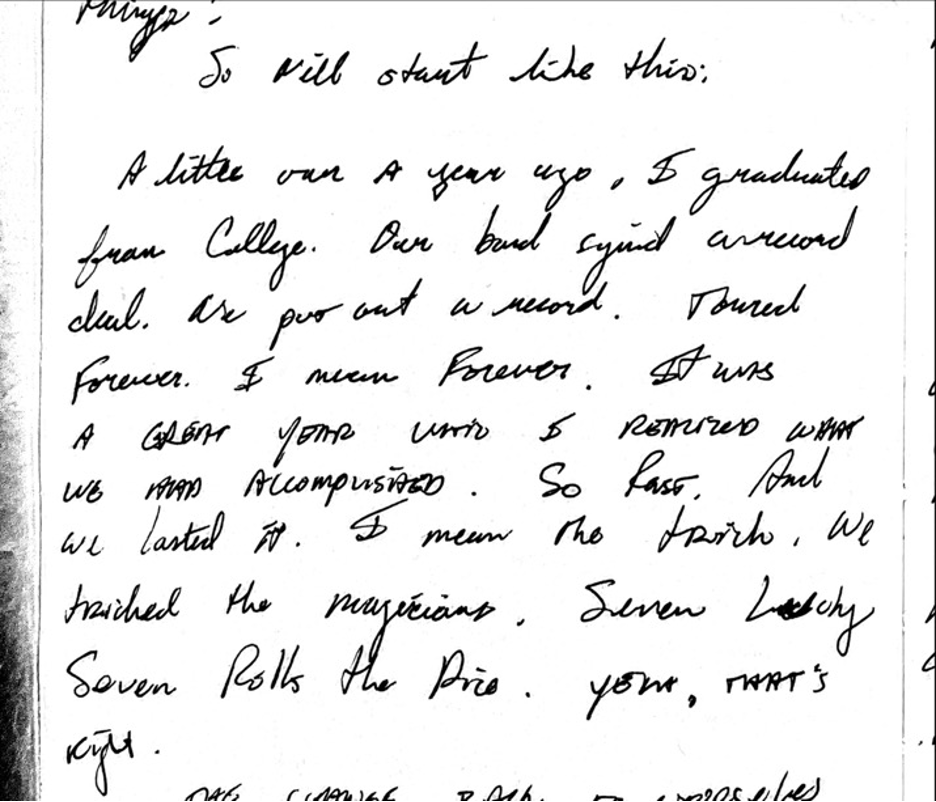 things!
So will start like this:
A little over A year ago, I graduated
from College. Our band signed a record
deal. We put out a record. Toured
Forever. I mean Forever. It was
A GREAT YEAR UNTIL I REALIZED WHAT
WE HAD ACCOMPLISHED. So Fast. And
we lasted it. I mean the trick. We
tricked the magicians. Seven Lucky
Seven Rolls the Dice. YEAH, THAT'S
Right.
THE CHANGE BACK TO OURSELVES